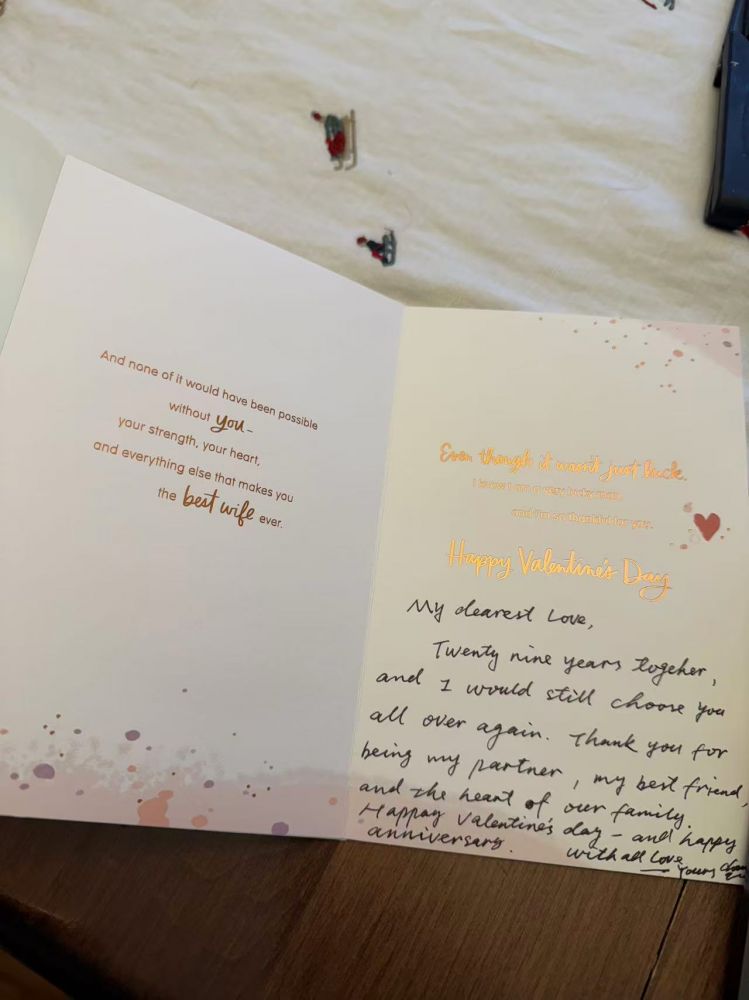 And none of it would have been possible
without you–
your strength, your heart,
and everything else that makes you
the best wife ever.
Even though it wasn't just luck.
I know I am a very lucky man,
and I'm so thankful for you.
Happy Valentine's Day
My dearest Love,
Twenty nine years together,
and I would still choose you
all over again. Thank you for
being my partner, my best friend,
and the heart of our family.
Happay Valentine's day – and happy
anniversary.
with all Love
Yours